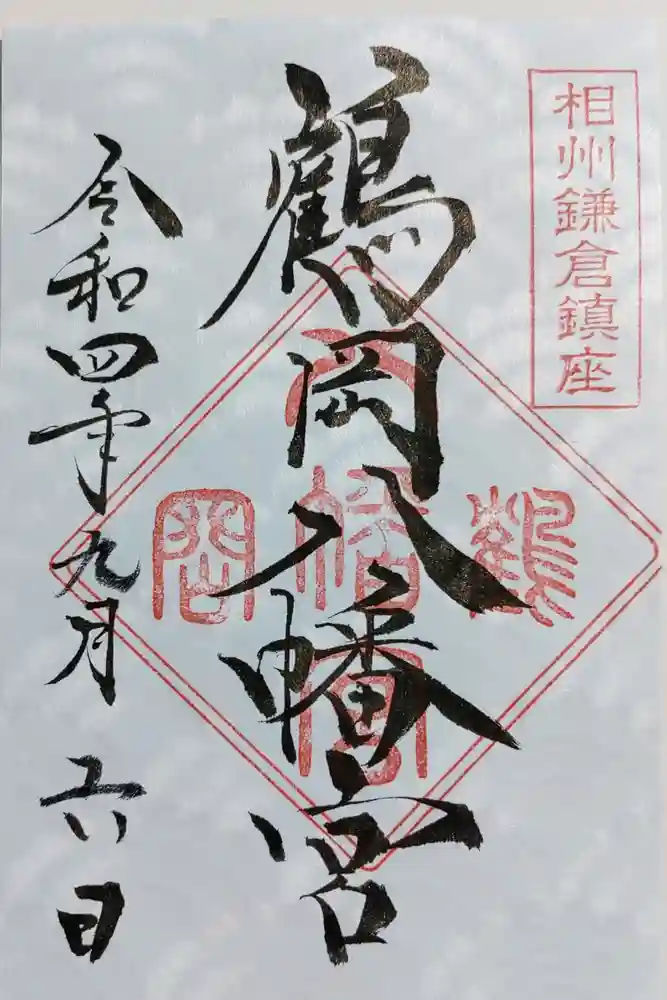 相州鎌倉鎮座
鶴岡八幡宮
鶴
岡
八
幡
宮
令和四年九月六日